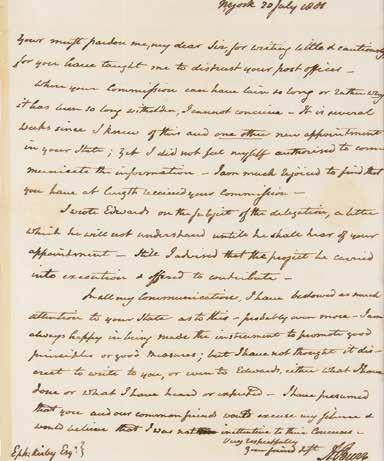 NYork 20 July 1801
Your must pardon me, my dear Sir, for writing with cautiously
for you have taught me to distrust your post offices —
Where your Commission can have lain so long or rather why
it has been so long witholden, I cannot conceive — It is several
weeks since I knew of this and one other new appointment
in your State; yet I did not feel myself authorised to com
municate the information — I am much rejoiced to find that
you have at length received your Commission —
I wrote Edwards on the subject of the delegation, a letter
which he will not understand until he shall hear of your
appointment — Still I advised that the project be carried
into execution & offered to contribute —
In all my Communications, I have bestowed as much
attention to your State as to this — probably even more — I am
always happy in being made the instrument to promote good
principles or good measures; but I have not thought it dis
creet to write to you, or even to Edwards, either what I have
done or what I have heard or expected — I have presumed
that you and our common friend would excuse my silence &
would believe that I was not inattentive to their Concerns —
Very respectfully
Your friend & St
A. Burr
Eph. Kirby Esqr.